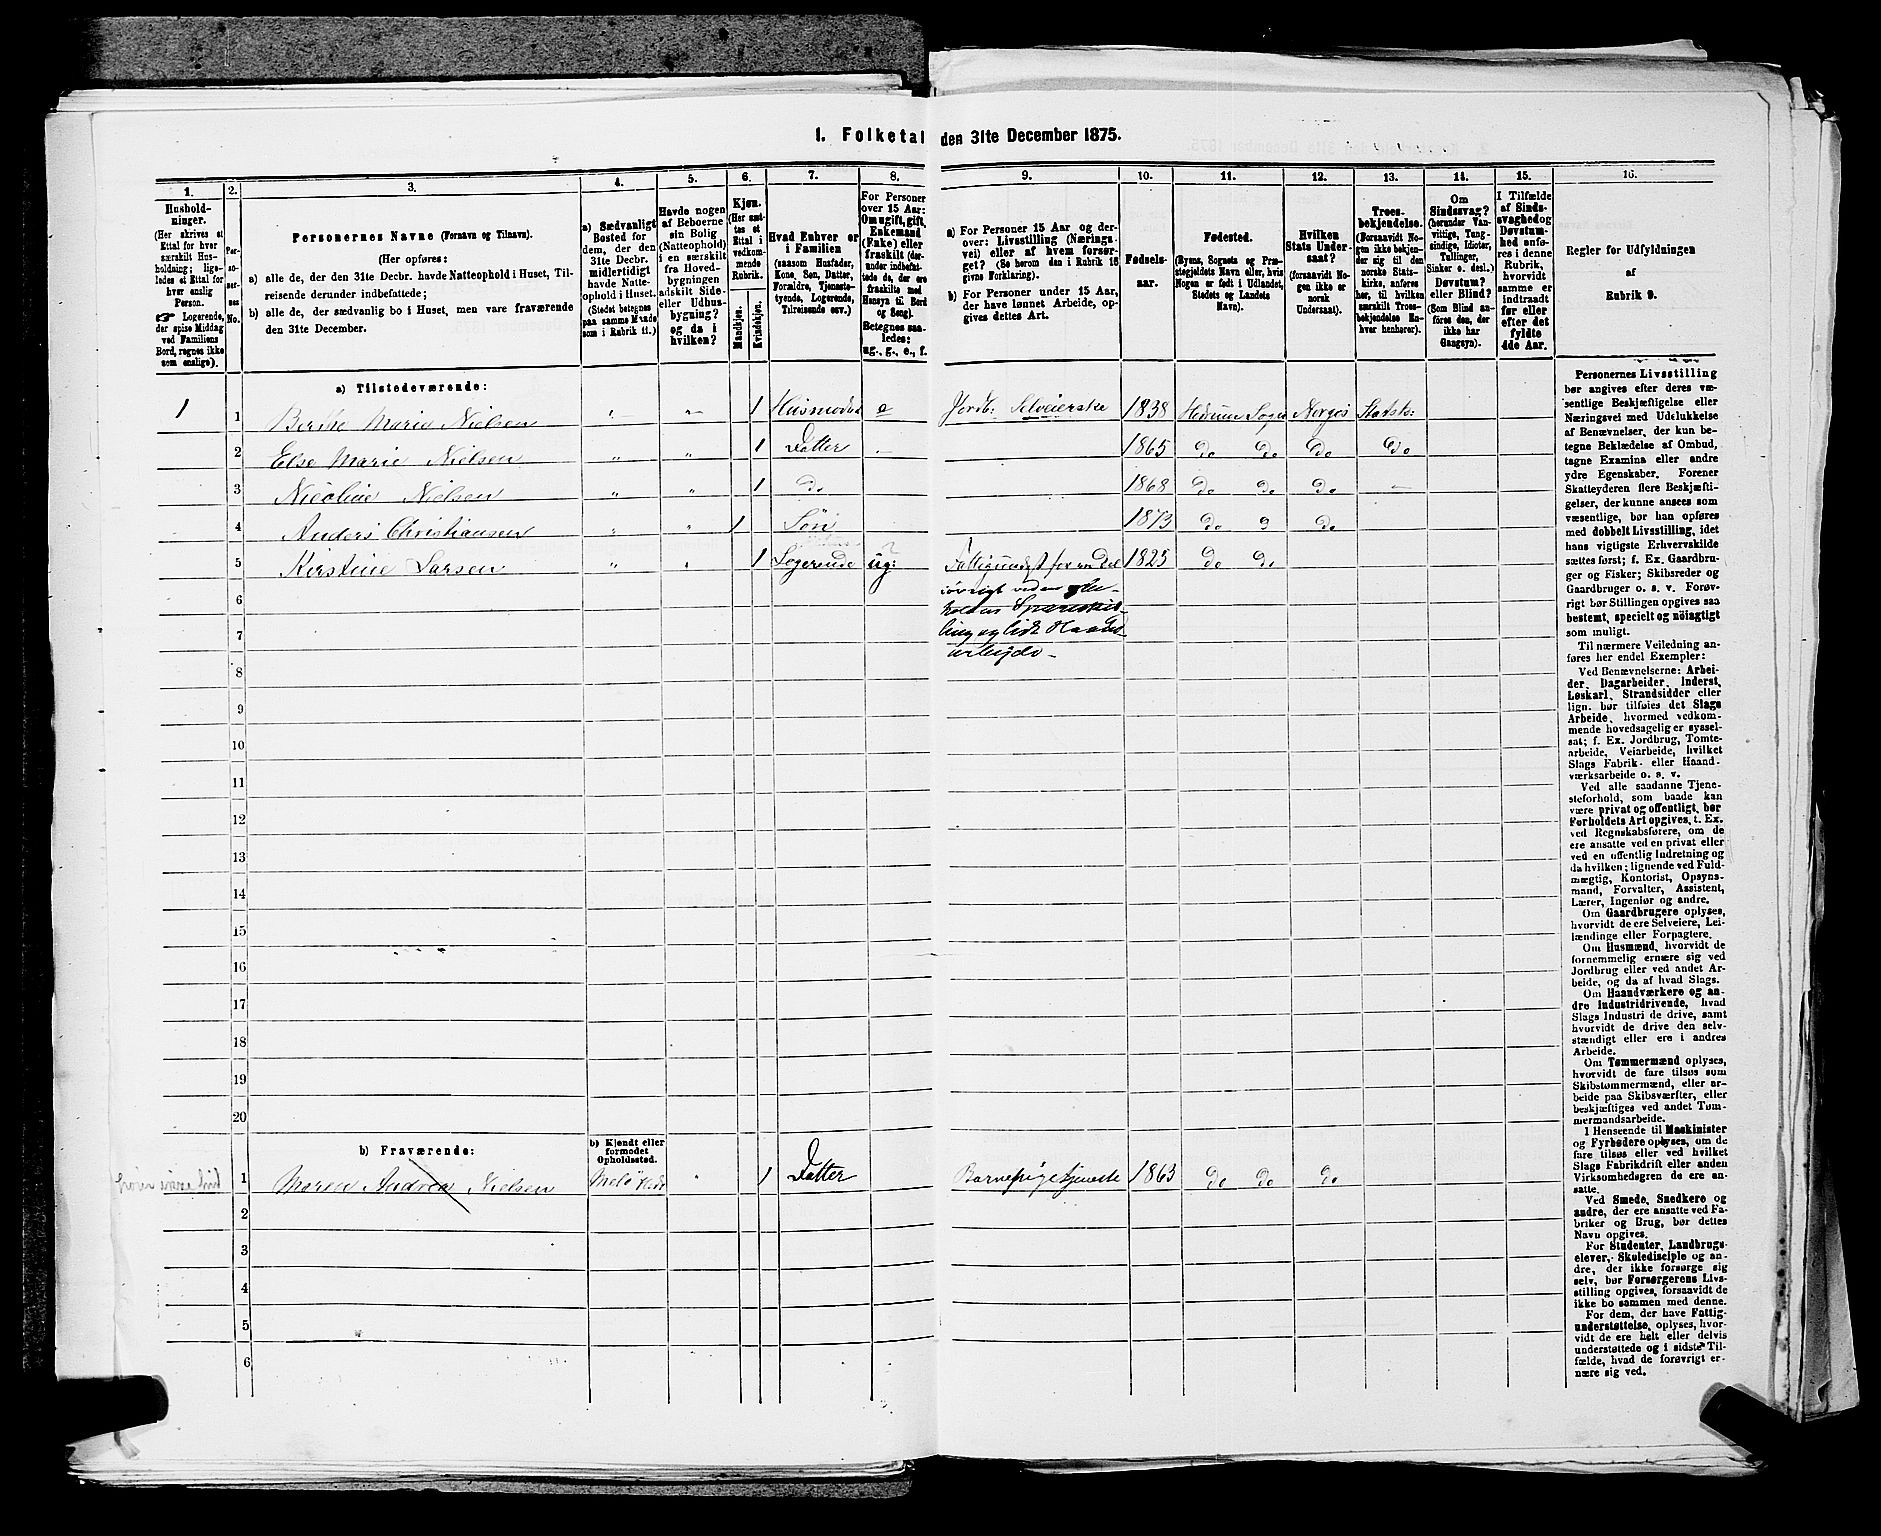 1. Folketal den 31te December 1875.
1.
Hushold-
ninger.
(Her skrives et
Ettal for hver
særskilt Hus-
holdning; lige-
ledes et Ettal for
hver enslig
Person.
☞ Logerende,
der spise Middag
ved Familiens
Bord, regnes ikke
som enslige).
2.
Per-
so-
ner-
nes
No.
3.
Personernes Navne (Fornavn og Tilnavn).
(Her opføres:
a) alle de, der den 31te Decbr. havde Natteophold i Huset, Til-
reisende derunder indbefattede;
b) alle de, der sædvanlig bo i Huset, men vare fraværende
den 31te December.
4.
a) Sædvanligt
Bosted for
dem, der den
31te Decbr.
midlertidigt
havde Natte-
ophold i Huset.
(Stedet betegnes
paa samme Maade
som i Rubrik 11.)
5.
Havde nogen
af Beboerne
sin Bolig
(Natteophold)
i en særskilt
fra Hoved-
bygningen
adskilt Side-
eller Udhus-
bygning?
og da i
hvilken?
6.
Kjøn.
(Her sæt-
tes et
Ettal i
vedkom-
mende
Rubrik.
Mandkjøn.
Kvindekjøn.
7.
Hvad Enhver er
i Familien
(saasom Husfader,
Kone, Søn, Datter,
Forældre, Tjeneste-
tyende, Logerende,
Tilreisende osv.)
8.
For Personer
over 15 Aar:
Om ugift, gift,
Enkemand
(Enke) eller
fraskilt (der-
under indbefat-
tede de, der ere
fraskilte med
Hensyn til Bord
og Seng).
Betegnes saa-
ledes:
ug., g., e., f.
9.
a) For Personer 15 Aar og der-
over: Livsstilling (Nærings-
vei) eller af hvem forsør-
get? (Se herom den i Rubrik 16
givne Forklaring).
b) For Personer under 15 Aar,
der have lønnet Arbeide, op-
gives dettes Art.
10.
Fødsels-
aar.
11.
Fødested.
(Byens, Sognets og Præ-
stegjeldets Navn eller, hvis
Nogen er født i Udlandet,
Stedets og Landets
Navn).
12.
Hvilken
Stats Under-
saat?
(forsaavidt No-
gen ikke er
norsk
Undersaat).
13.
Troes-
bekjendelse.
(Forsaavidt No-
gen ikke bekjen-
der sig til den
norske Stats-
kirke, anføres
her, til hvilken
særskilt Troes-
bekjendelse En-
hver henhører).
14.
Om
Sindssvag?
(herunder Van-
vittige, Tung-
sindige, Idioter,
Tullinger,
Sinker o. desl.)
Døvstum?
eller Blind?
(Som Blind an-
føres den, der
ikke har
Gangsyn).
15.
I Tilfælde
af Sinds-
svaghed og
Døvstum-
hed anfø-
res i denne
Rubrik,
hvorvidt
samme er
indtraadt
før eller
efter det
fyldte
4de Aar.
16.
Regler for Udfyldningen
af
Rubrik 9.
a) Tilstedeværende:
1 1 Berthe Maria Nielsen 1 Husmoder e Jordb: Selveierske 1838 Hedrum Sogn Norges Statsk:
2 Else Marie Nielsen " " 1 Datter 1865 do do do do
3 Nicoline Nielsen " " 1 do 1868 do do do —
4 Anders Christiansen " " 1 Søn 1873 do do
5 Kirstine Larsen " " 1 Logerende ug: Fattigundst for en Del 1825 do do
iøvrigt ved
6
7 ling og lidt Haand-
arbeide —
8
9
10
11
12
13
14
15
16
17
18
19
20
b) Fraværende:
b) Kjendt eller
formodet
Opholdssted.
1 Maren Andrea Nielsen 1 Datter Barnepigetjeneste 1863 do do do
2
3
4
5
6
Personernes Livsstilling
bør angives efter deres væ-
sentlige Beskjæftigelse eller
Næringsvei med Udelukkelse
af Benævnelser, der kun be-
tegne Beklædelse af Ombud,
tagne Examina eller andre
ydre Egenskaber. Forener
Skatteyderen flere Beskjæfti-
gelser, der kunne ansees som
væsentlige, bør han opføres
med dobbelt Livsstilling, idet
hans vigtigste Erhvervskilde
sættes først; f. Ex. Gaardbru-
ger og Fisker; Skibsreder og
Gaardbruger o. s. v. Forøv-
rigt bør Stillingen opgives saa
bestemt, specielt og nøiagtigt
som muligt.
Til nærmere Veiledning an-
føres her endel Exempler:
Ved Benævnelserne: Arbei-
der, Dagarbeider, Inderst,
Løskarl, Strandsidder eller
lign. bør tilføies det Slags
Arbeide, hvormed vedkom-
mende hovedsagelig er syssel-
sat; f. Ex. Jordbrug, Tomte-
arbeide, Veiarbeide, hvilket
Slags Fabrik- eller Haand-
værksarbeide o. s. v.
Ved alle saadanne Tjene-
steforhold, som baade kan
være privat og offentligt, bør
Forholdets Art opgives, t. Ex.
ved Regnskabsførere, om de
ere ansatte ved en privat eller
ved en offentlig Indretning og
da hvilken; lignende ved Fuld-
mægtig, Kontorist, Opsyns-
mand, Forvalter, Assistent,
Lærer, Ingeniør og andre.
Om Gaardbrugere oplyses,
hvorvidt de ere Selveiere, Lei-
lændinge eller Forpagtere.
Om Husmænd, hvorvidt de
fornemmelig ernære sig ved
Jordbrug eller ved andet Ar-
beide, og da af hvad Slags.
Om Haandværkere og an-
dre Industridrivende, hvad
Slags Industri de drive, samt
hvorvidt de drive den selv-
stændigt eller ere i andres
Arbeide.
Om Tømmermænd oplyses,
hvorvidt de fare tilsøs som
Skibstømmermænd, eller ar-
beide paa Skibsværfter, eller
beskjæftiges ved andet Tøm-
mermandsarbeide.
I Henseende til Maskinister
og Fyrbødere oplyses, om de
fare tilsøs eller ved hvilket
Slags Fabrikdrift eller anden
Virksomhedsgren de ere an-
satte.
Ved Smede, Snedkere og
andre, der ere ansatte ved Fa-
briker og Brug, bør dettes
Navn opgives.
For Studenter, Landbrugs-
elever, Skoledisciple og an-
dre, der ikke forsørge sig
selv, bør Forsørgerens Livs-
stilling opgives, forsaavidt de
ikke bo sammen med denne.
For dem, der have Fattig-
understøttelse, oplyses, hvor-
vidt de ere helt eller delvis
understøttede og i sidste Til-
fælde, hvad de forøvrigt er-
nære sig ved.